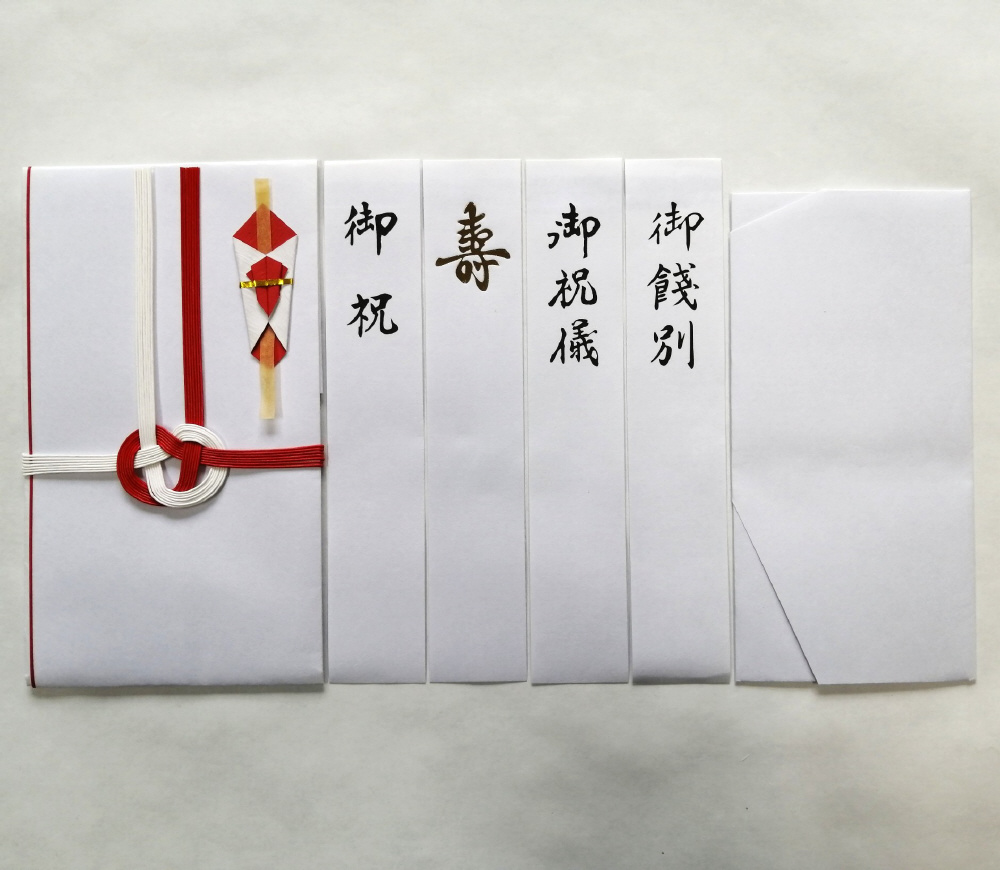 御祝
寿
御祝儀
御餞別